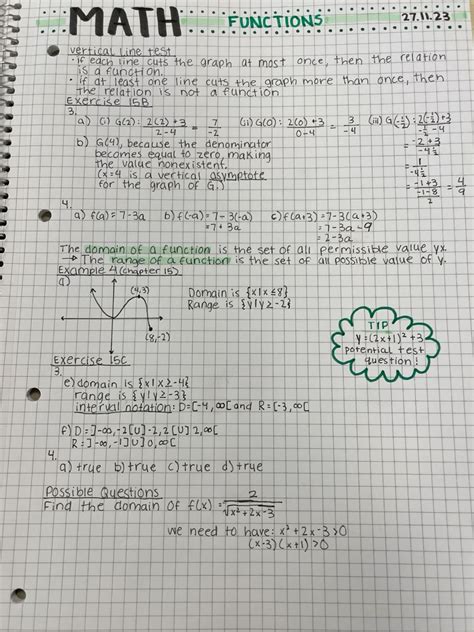 MATH FUNCTIONS 27.11.23
vertical line test
· if each line cuts the graph at most once, then the relation
is a function.
· if at least one line cuts the graph more than once, then
the relation is not a function
Exercise 15B
3.
a) (i) G(2): 2(2)+3 / 2-4 = 7 / -2 (ii) G(0): 2(0)+3 / 0-4 = 3 / -4 (iii) G(-1/2): 2(-1/2)+3 / -1/2 -4
= -2+3 / -4 1/2
= 1 / -4 1/2
= -1+3 / -1-8 / 2 = 4/9
b) G(4), because the denominator
becomes equal to zero, making
the value nonexistent.
(x=4 is a vertical asymptote
for the graph of G.)
4.
a) f(a) = 7-3a b) f(-a) = 7-3(-a) c) f(a+3) = 7-3(a+3)
= 7+3a = 7-3a-9
= -2-3a
The domain of a function is the set of all permissible value yx.
→ The range of a function is the set of all possible value of y.
Example 4 (chapter 15)
a)
(4,3)
(8,-2)
Domain is {x|x≤8}
Range is {y|y≥-2}
TIP
y=(2x+1)²+3
potential test
question!
Exercise 15C
3.
e) domain is {x|x≥-4}
range is {y|y≥-3}
interval notation: D=[-4,∞[ and R=[-3,∞[
f) D=]-∞,-2[U]-2,2[U]2,∞[
R=]-∞,-1]U]0,∞[
4.
a) true b) true c) true d) true
Possible Questions
Find the domain of f(x) = 2 / √x²+2x-3
we need to have: x²+2x-3>0
(x-3)(x+1)>0